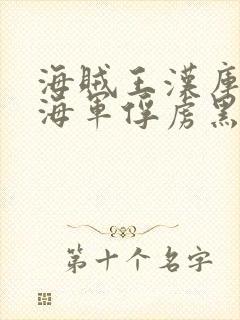 海贼王漢庫
海軍俘虏黑
第十个名字